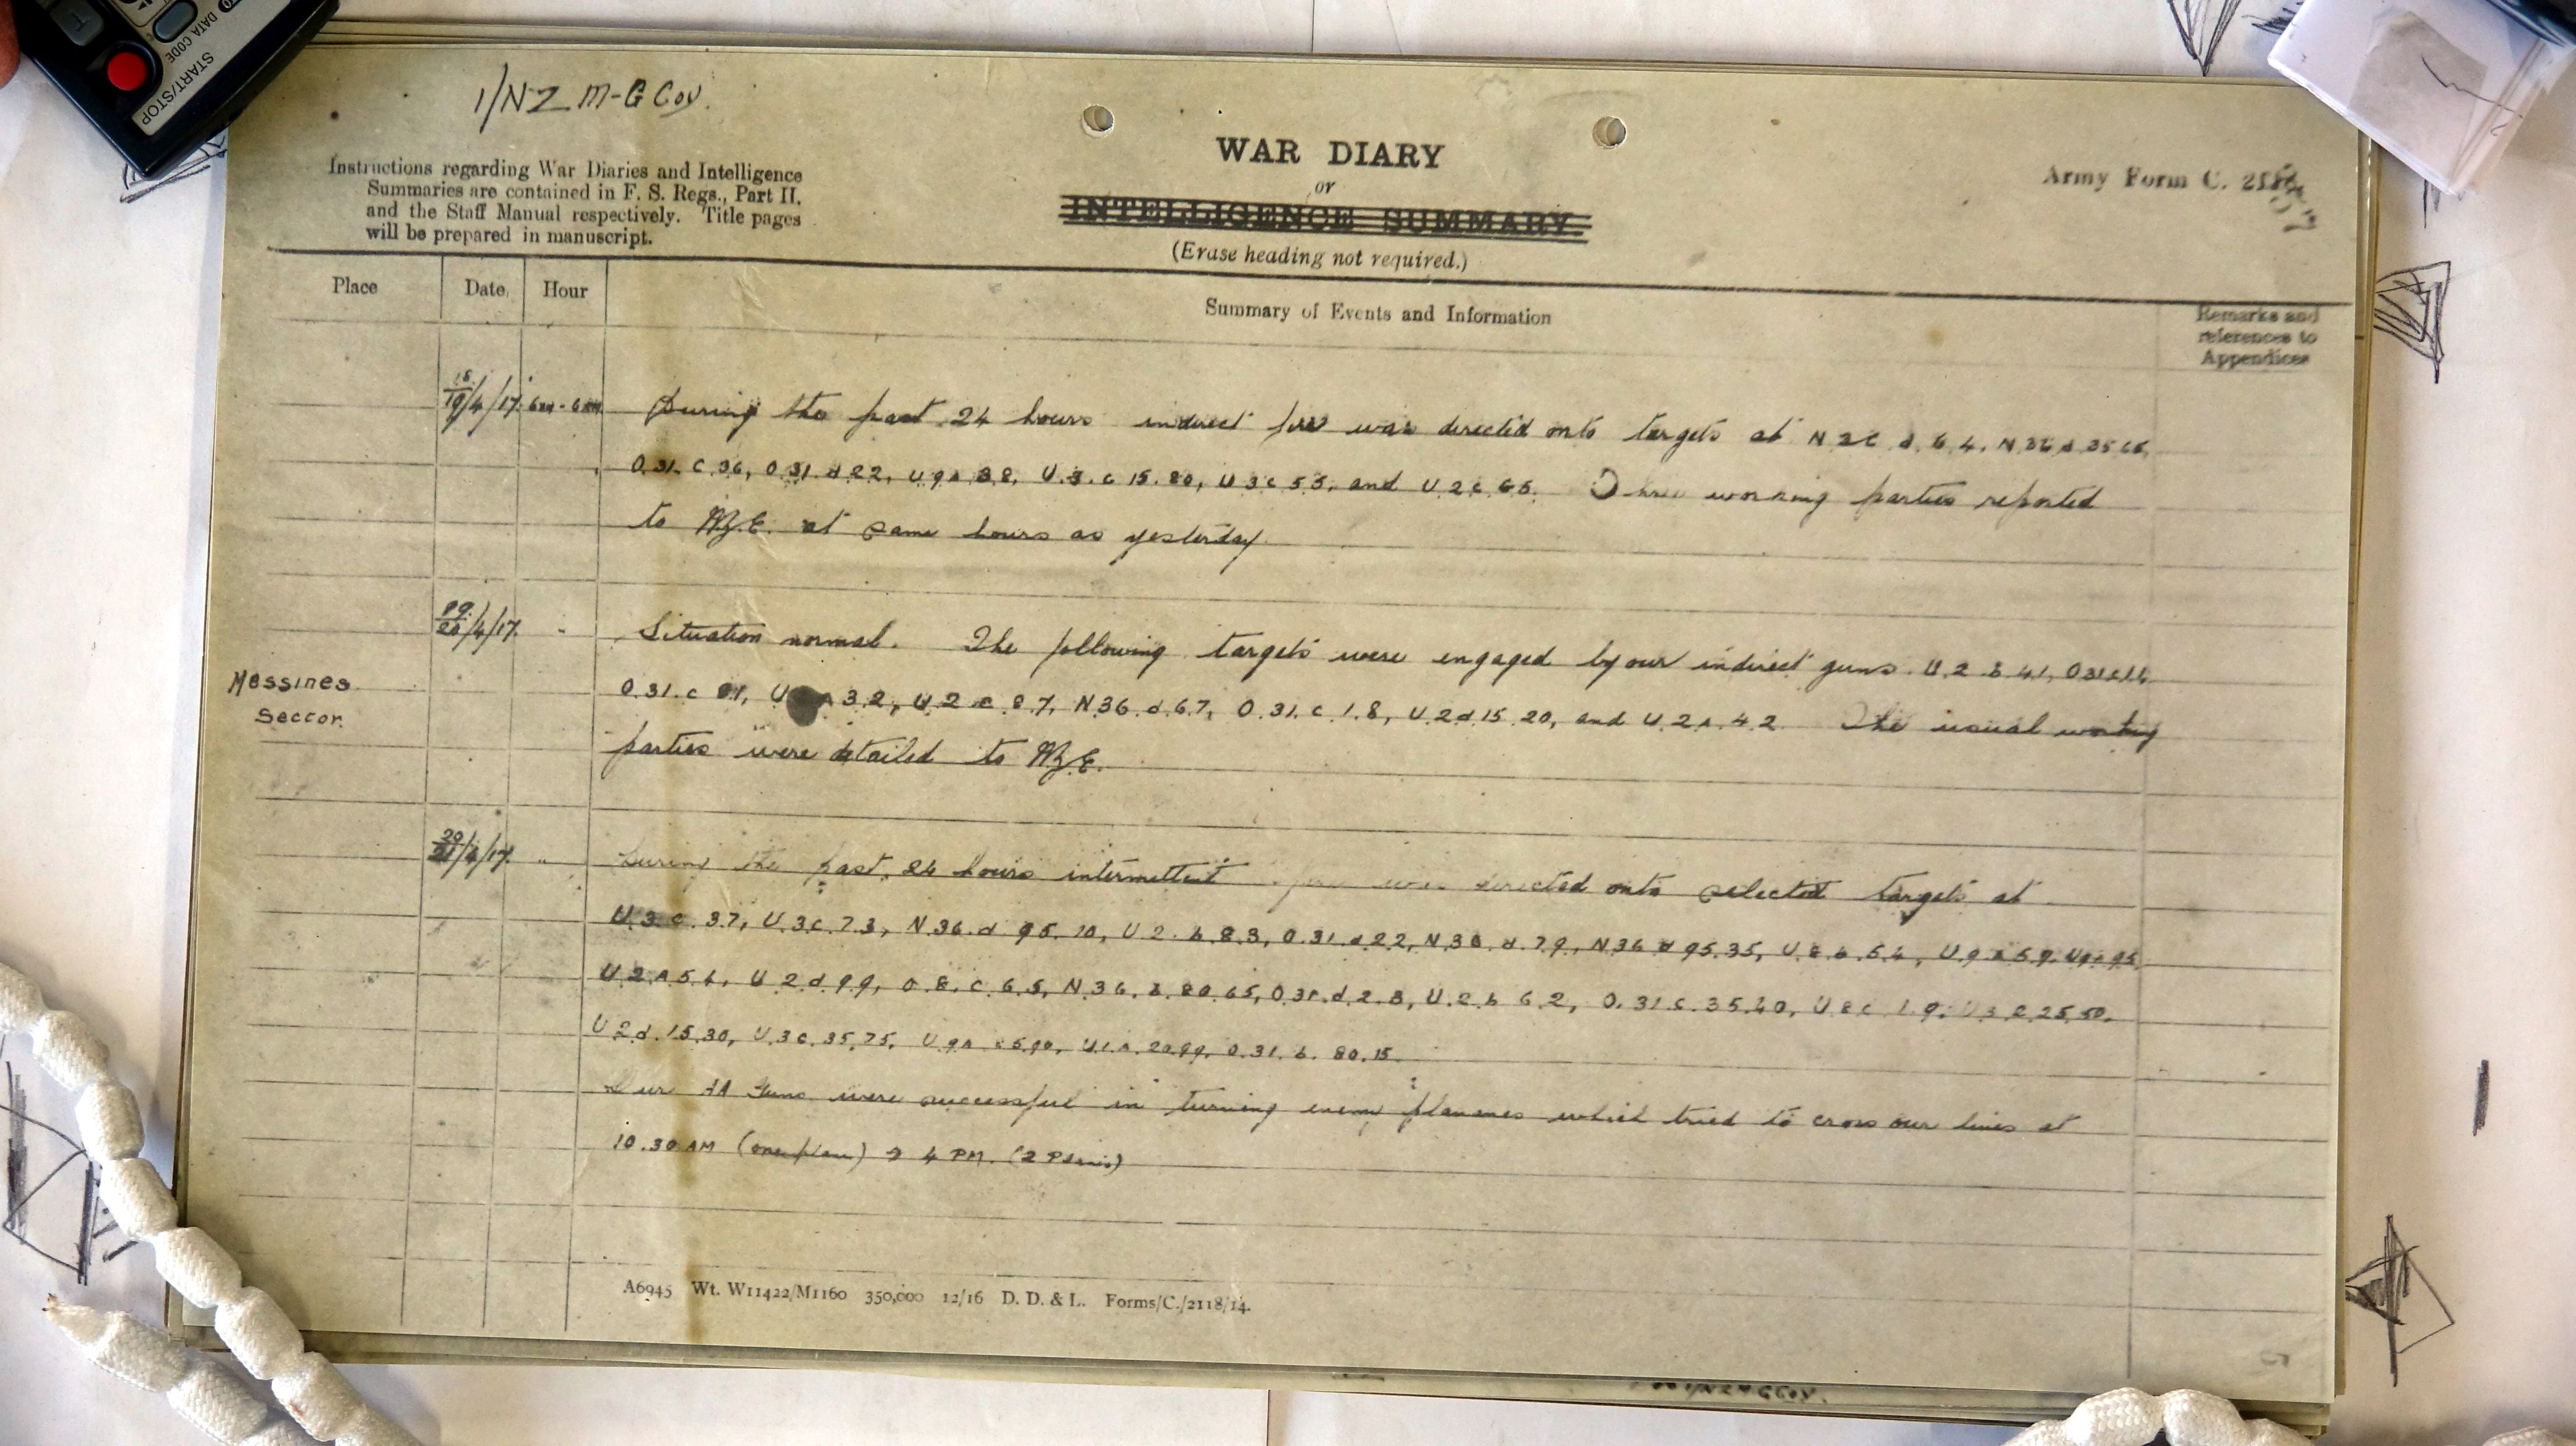 START/STOP
DATA CODE
1/NZ M-G Coy.
Instructions regarding War Diaries and Intelligence
Summaries are contained in F. S. Regs., Part II,
and the Staff Manual respectively. Title pages
will be prepared in manuscript.
WAR DIARY
or
INTELLIGENCE SUMMARY.
(Erase heading not required.)
Army Form C.
Place
Date
Hour
Summary of Events and Information
Remarks and
references to
Appendices
18/19/4/17.
During the past 24 hours indirect fire was directed onto targets at
O.31.C.36, O.31.d22, U9A38, U.3.c.15.80, U3c55, and U.2c.65. Three working parties reported
to N.Z.E. at same hours as yesterday.
19/20/4/17. "
Situation normal. The following targets were engaged by our indirect guns. U.2.b.41,
O.31.c 3.2, U2 c 87, N36.d.67, O.31.c.1.8, U.2d.15.20, and U.2A.42. The usual working
parties were detailed to N.Z.E.
Messines
Sector.
20/21/4/17. "
During the past 24 hours intermittent fire was directed onto selected targets at
U.3c.37, U.3c.73, N36.d 95.10, U2.b83, O.31.d22, d.79, N36d95.35, U8b.54,
U2A54, U2d99, O.8.c.65, N36.b.80.65, U.2b62, O.31c.35.40, U8c19,
U2d.15.30, U.3c.35.75, O.31.b.80.15.
Our AA Guns were successful in turning enemy planes which tried to cross our lines at
10.30 AM (one plane) & 4 PM. (2 Planes)
A6945 Wt. W11422/M1160 350,000 12/16 D. D. & L. Forms/C./2118/14.